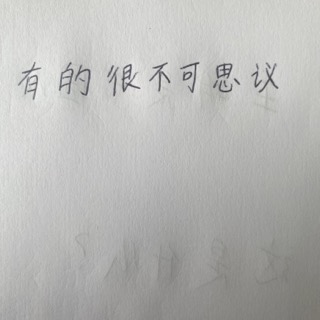 有的很不可思议